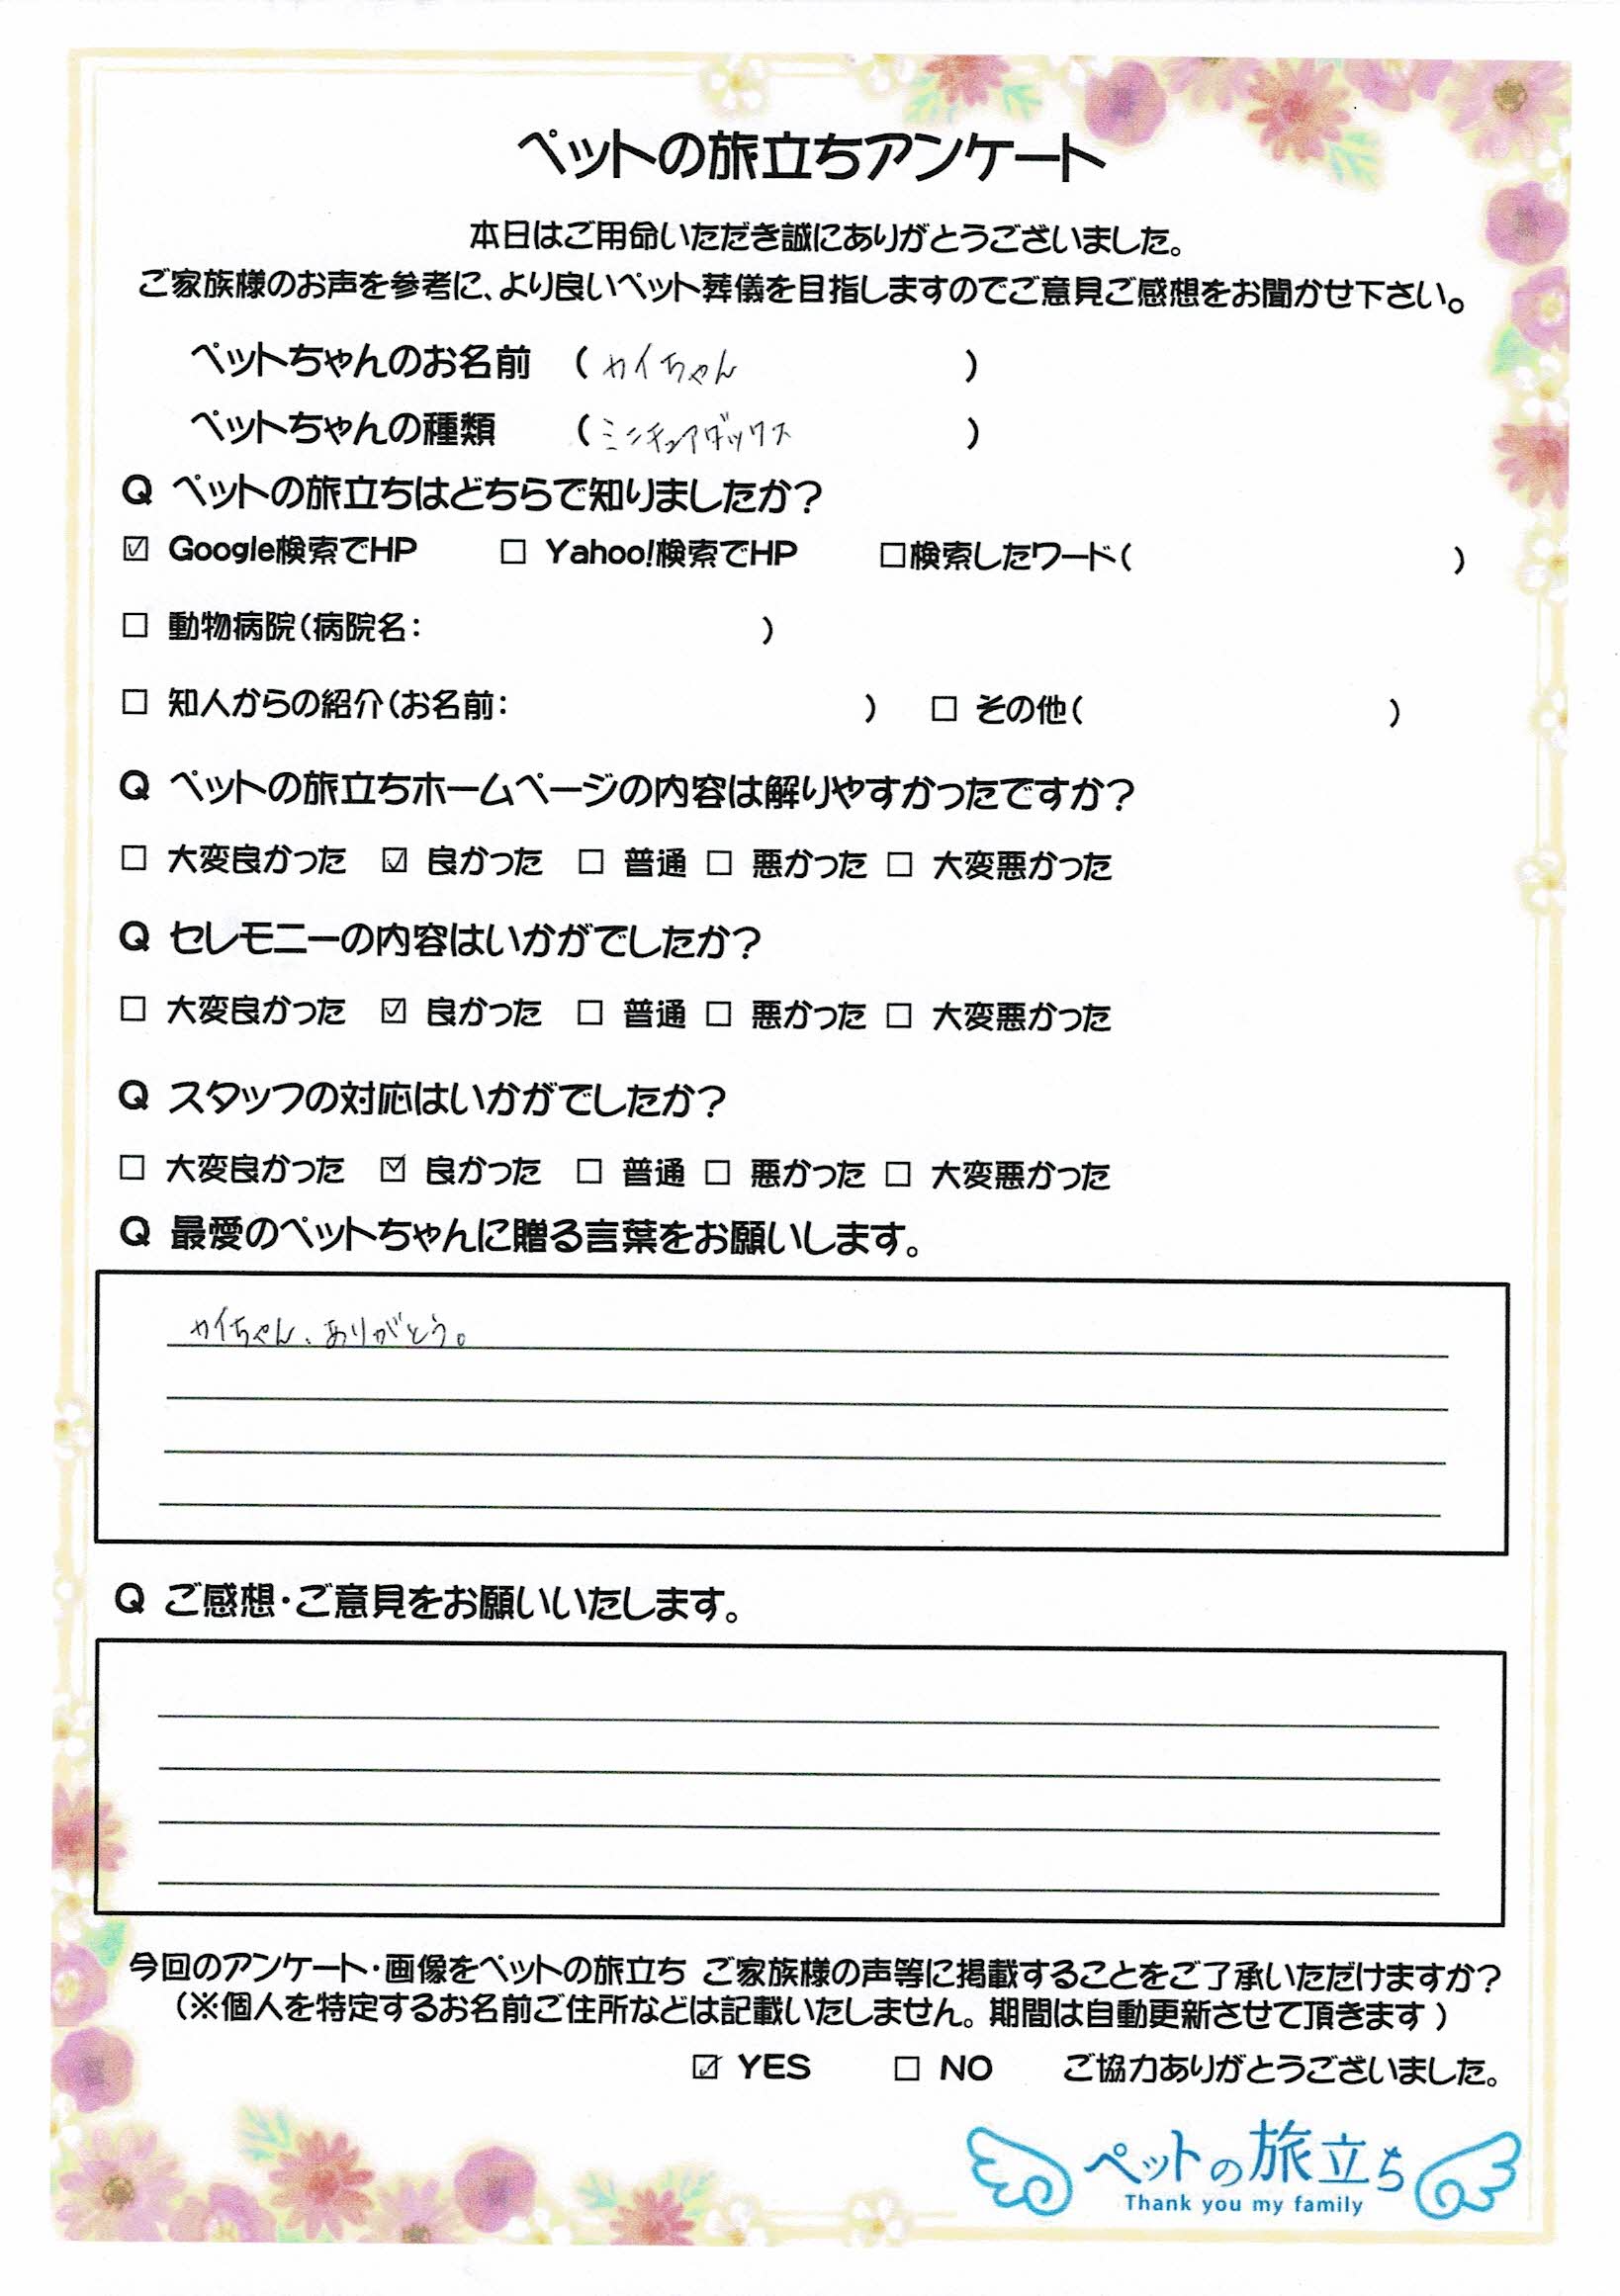 ペットの旅立ちアンケート
本日はご用命いただき誠にありがとうございました。
ご家族様のお声を参考に、より良いペット葬儀を目指しますのでご意見ご感想をお聞かせ下さい。
ペットちゃんのお名前 （ カイちゃん ）
ペットちゃんの種類 （ ミニチュアダックス ）
Q ペットの旅立ちはどちらで知りましたか？
☑ Google検索でHP □ Yahoo!検索でHP □検索したワード（ ）
□ 動物病院（病院名： ）
□ 知人からの紹介（お名前： ） □ その他（ ）
Q ペットの旅立ちホームページの内容は解りやすかったですか？
□ 大変良かった ☑ 良かった □ 普通 □ 悪かった □ 大変悪かった
Q セレモニーの内容はいかがでしたか？
□ 大変良かった ☑ 良かった □ 普通 □ 悪かった □ 大変悪かった
Q スタッフの対応はいかがでしたか？
□ 大変良かった ☑ 良かった □ 普通 □ 悪かった □ 大変悪かった
Q 最愛のペットちゃんに贈る言葉をお願いします。
カイちゃん、ありがとう。
Q ご感想・ご意見をお願いいたします。
今回のアンケート・画像をペットの旅立ち ご家族様の声等に掲載することをご了承いただけますか？
（※個人を特定するお名前ご住所などは記載いたしません。期間は自動更新させて頂きます）
☑ YES □ NO ご協力ありがとうございました。
ペットの旅立ち
Thank you my family